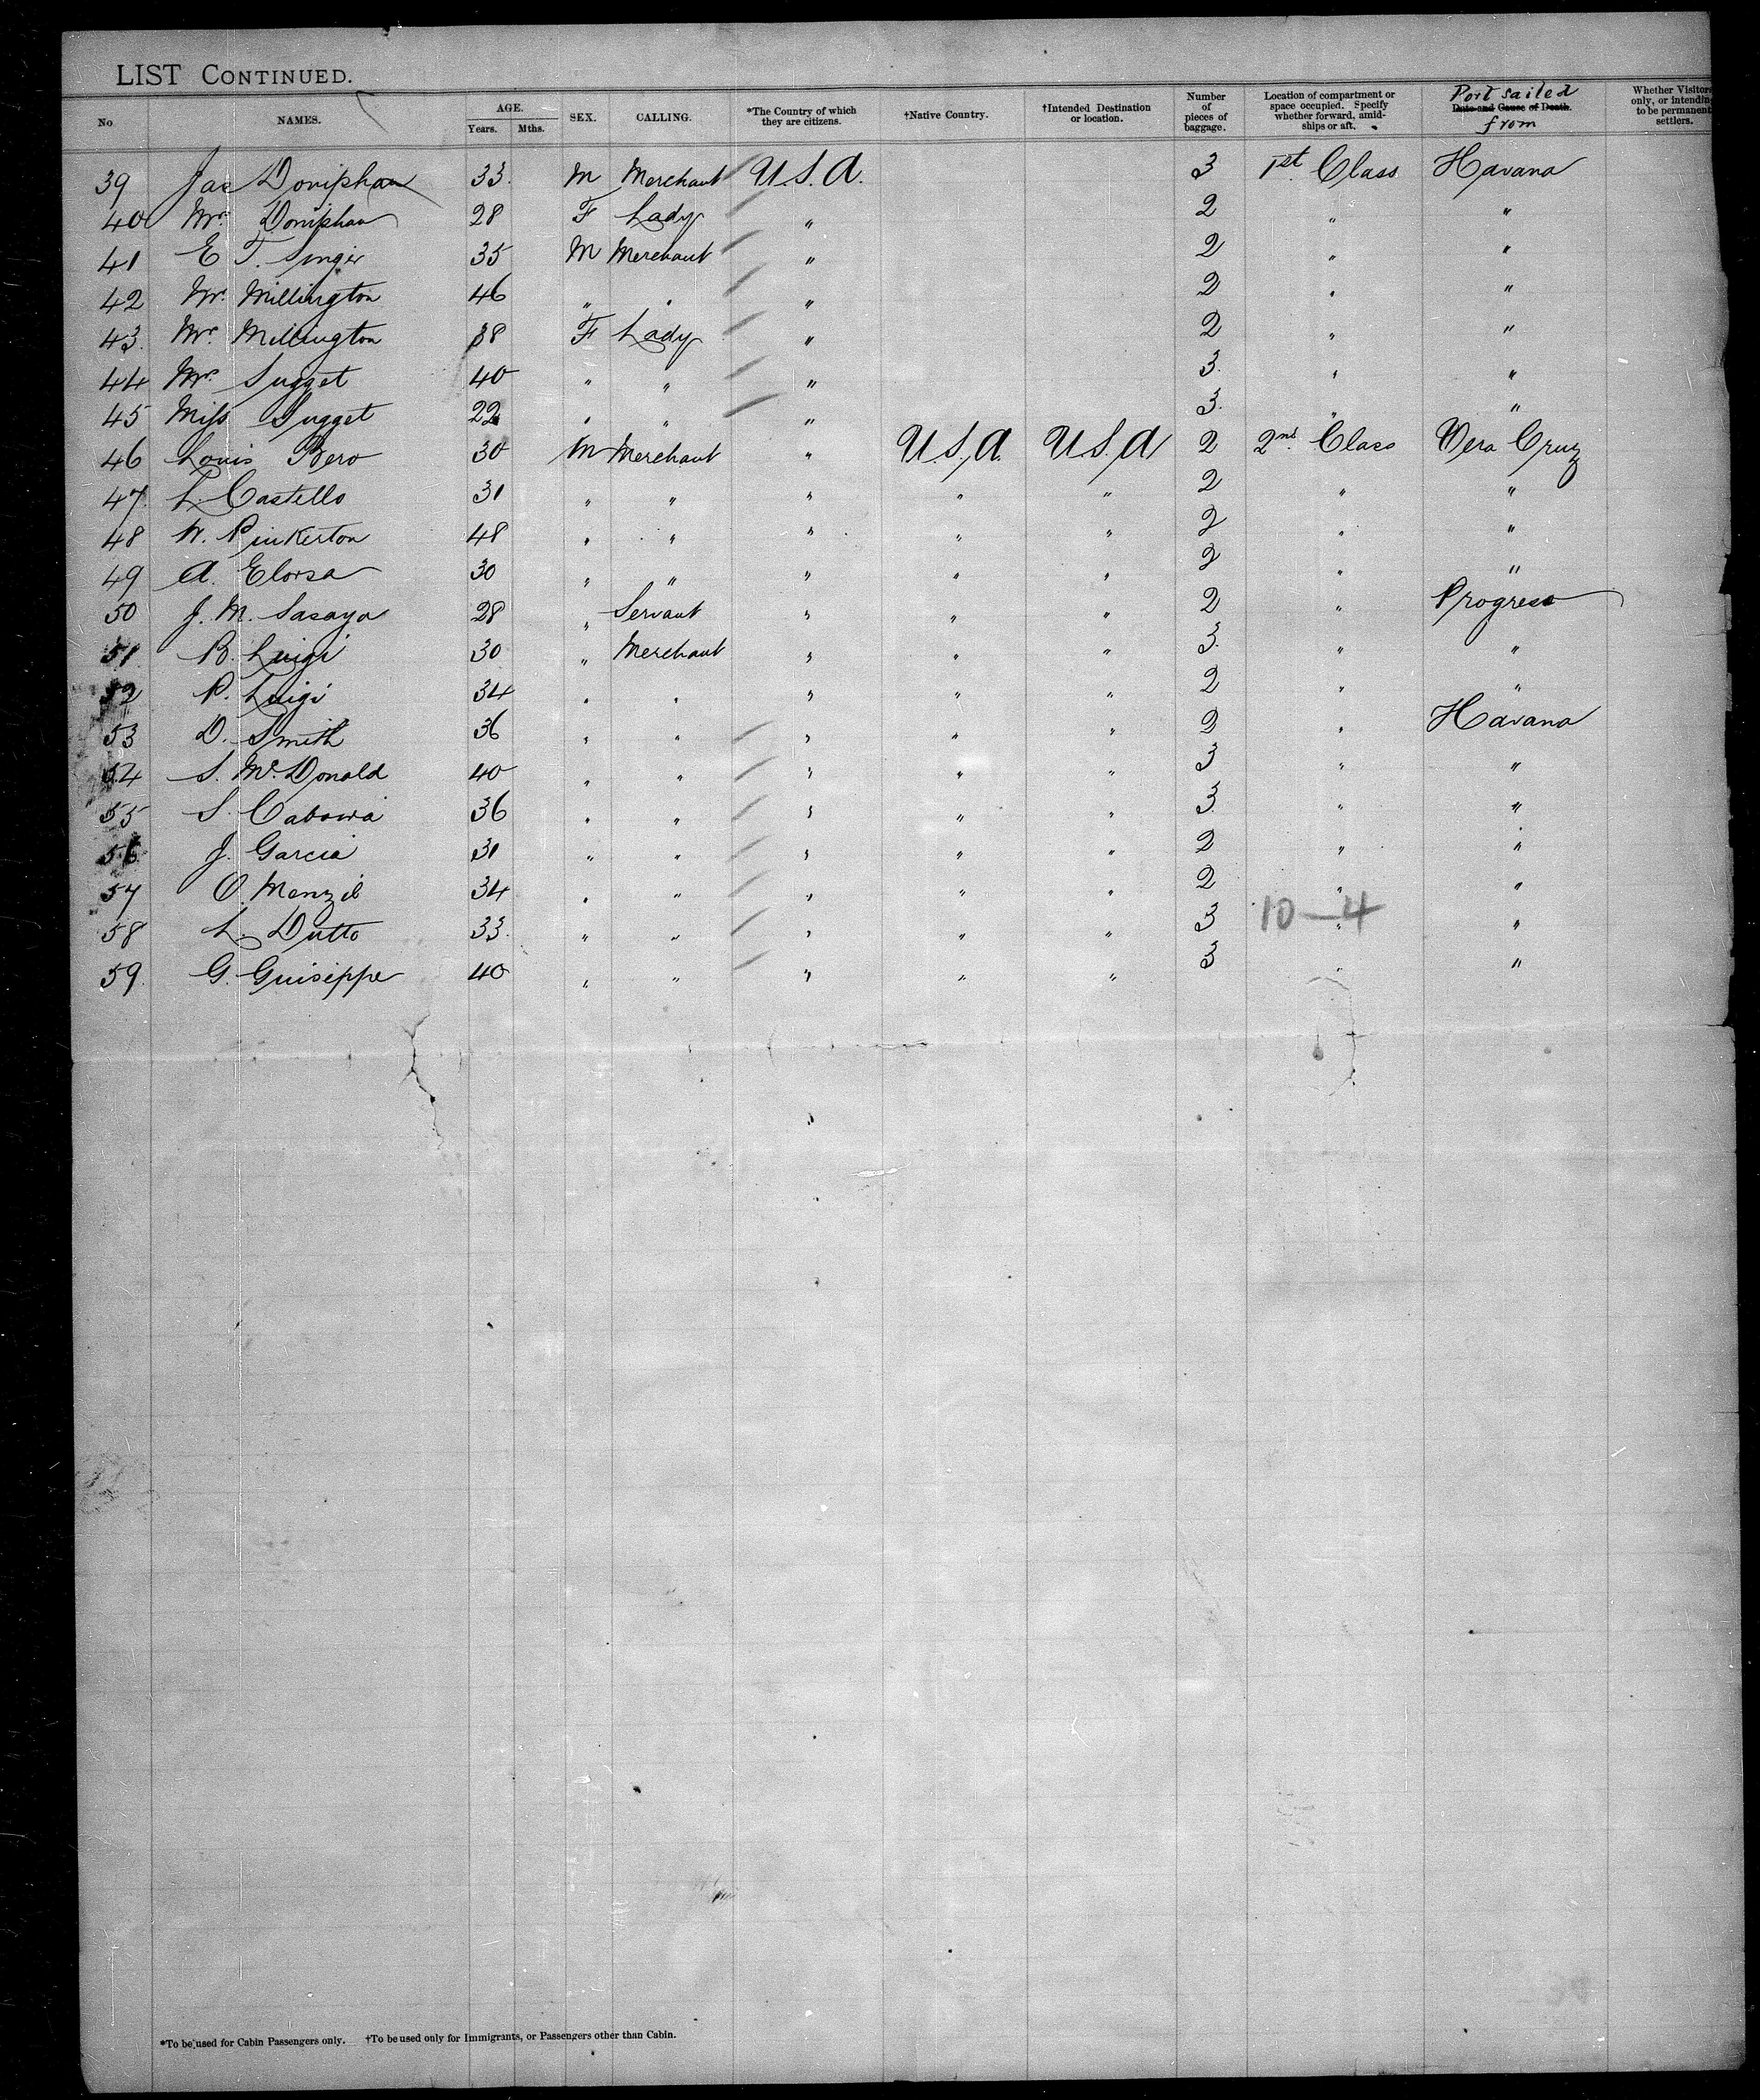 LIST CONTINUED.
No NAMES. AGE. Years. Mths. SEX. CALLING. *The Country of which they are citizens. †Native Country. †Intended Destination or location. Number of pieces of baggage. Location of compartment or space occupied. Specify whether forward, amidships or aft. Port sailed Date and Cause of Death. from Whether Visitors only, or intending to be permanent settlers.
39 Jas Doniphan 33. M Merchant U.S.A. 3 1st Class Havana
40 Mrs. Doniphan 28 F Lady " 2 " "
41 E T. Singer 35 M Merchant " 2 " "
42 Mr. Millington 46 " " " 2 " "
43. Mrs. Millington 38 F Lady " 2 " "
44 Mrs. Sugget 40 " " " 3. " "
45 Miss Sugget 22 " " " 3. " "
46 Louis Bero 30 M Merchant " U.S.A. U.S.A 2 2nd. Class Vera Cruz
47. L. Castello 31 " " " " " 2 " "
48 W. Pinkerton 48 " " " " " 2 " "
49 A. Elorsa 30 " " " " " 2 " "
50 J. M. Sasaya 28 " Servant " " " 2 " Progreso
51 B. Luigi 30 " Merchant " " " 3. " "
52 P. Luigi 34 " " " " " 2 " "
53 D. Smith 36 " " " " " 2 " Havana
54 S. McDonald 40 " " " " " 3 " "
55 S. 36 " " " " " 3. " "
56 J. Garcia 31 " " " " " 2 " "
57 O. 34 " " " " " 2 " "
58 L. Dutto 33. " " " " " 3 10-4 " "
59. G. Guiseppe 40 " " " " " 3 " "
*To be used for Cabin Passengers only. †To be used only for Immigrants, or Passengers other than Cabin.